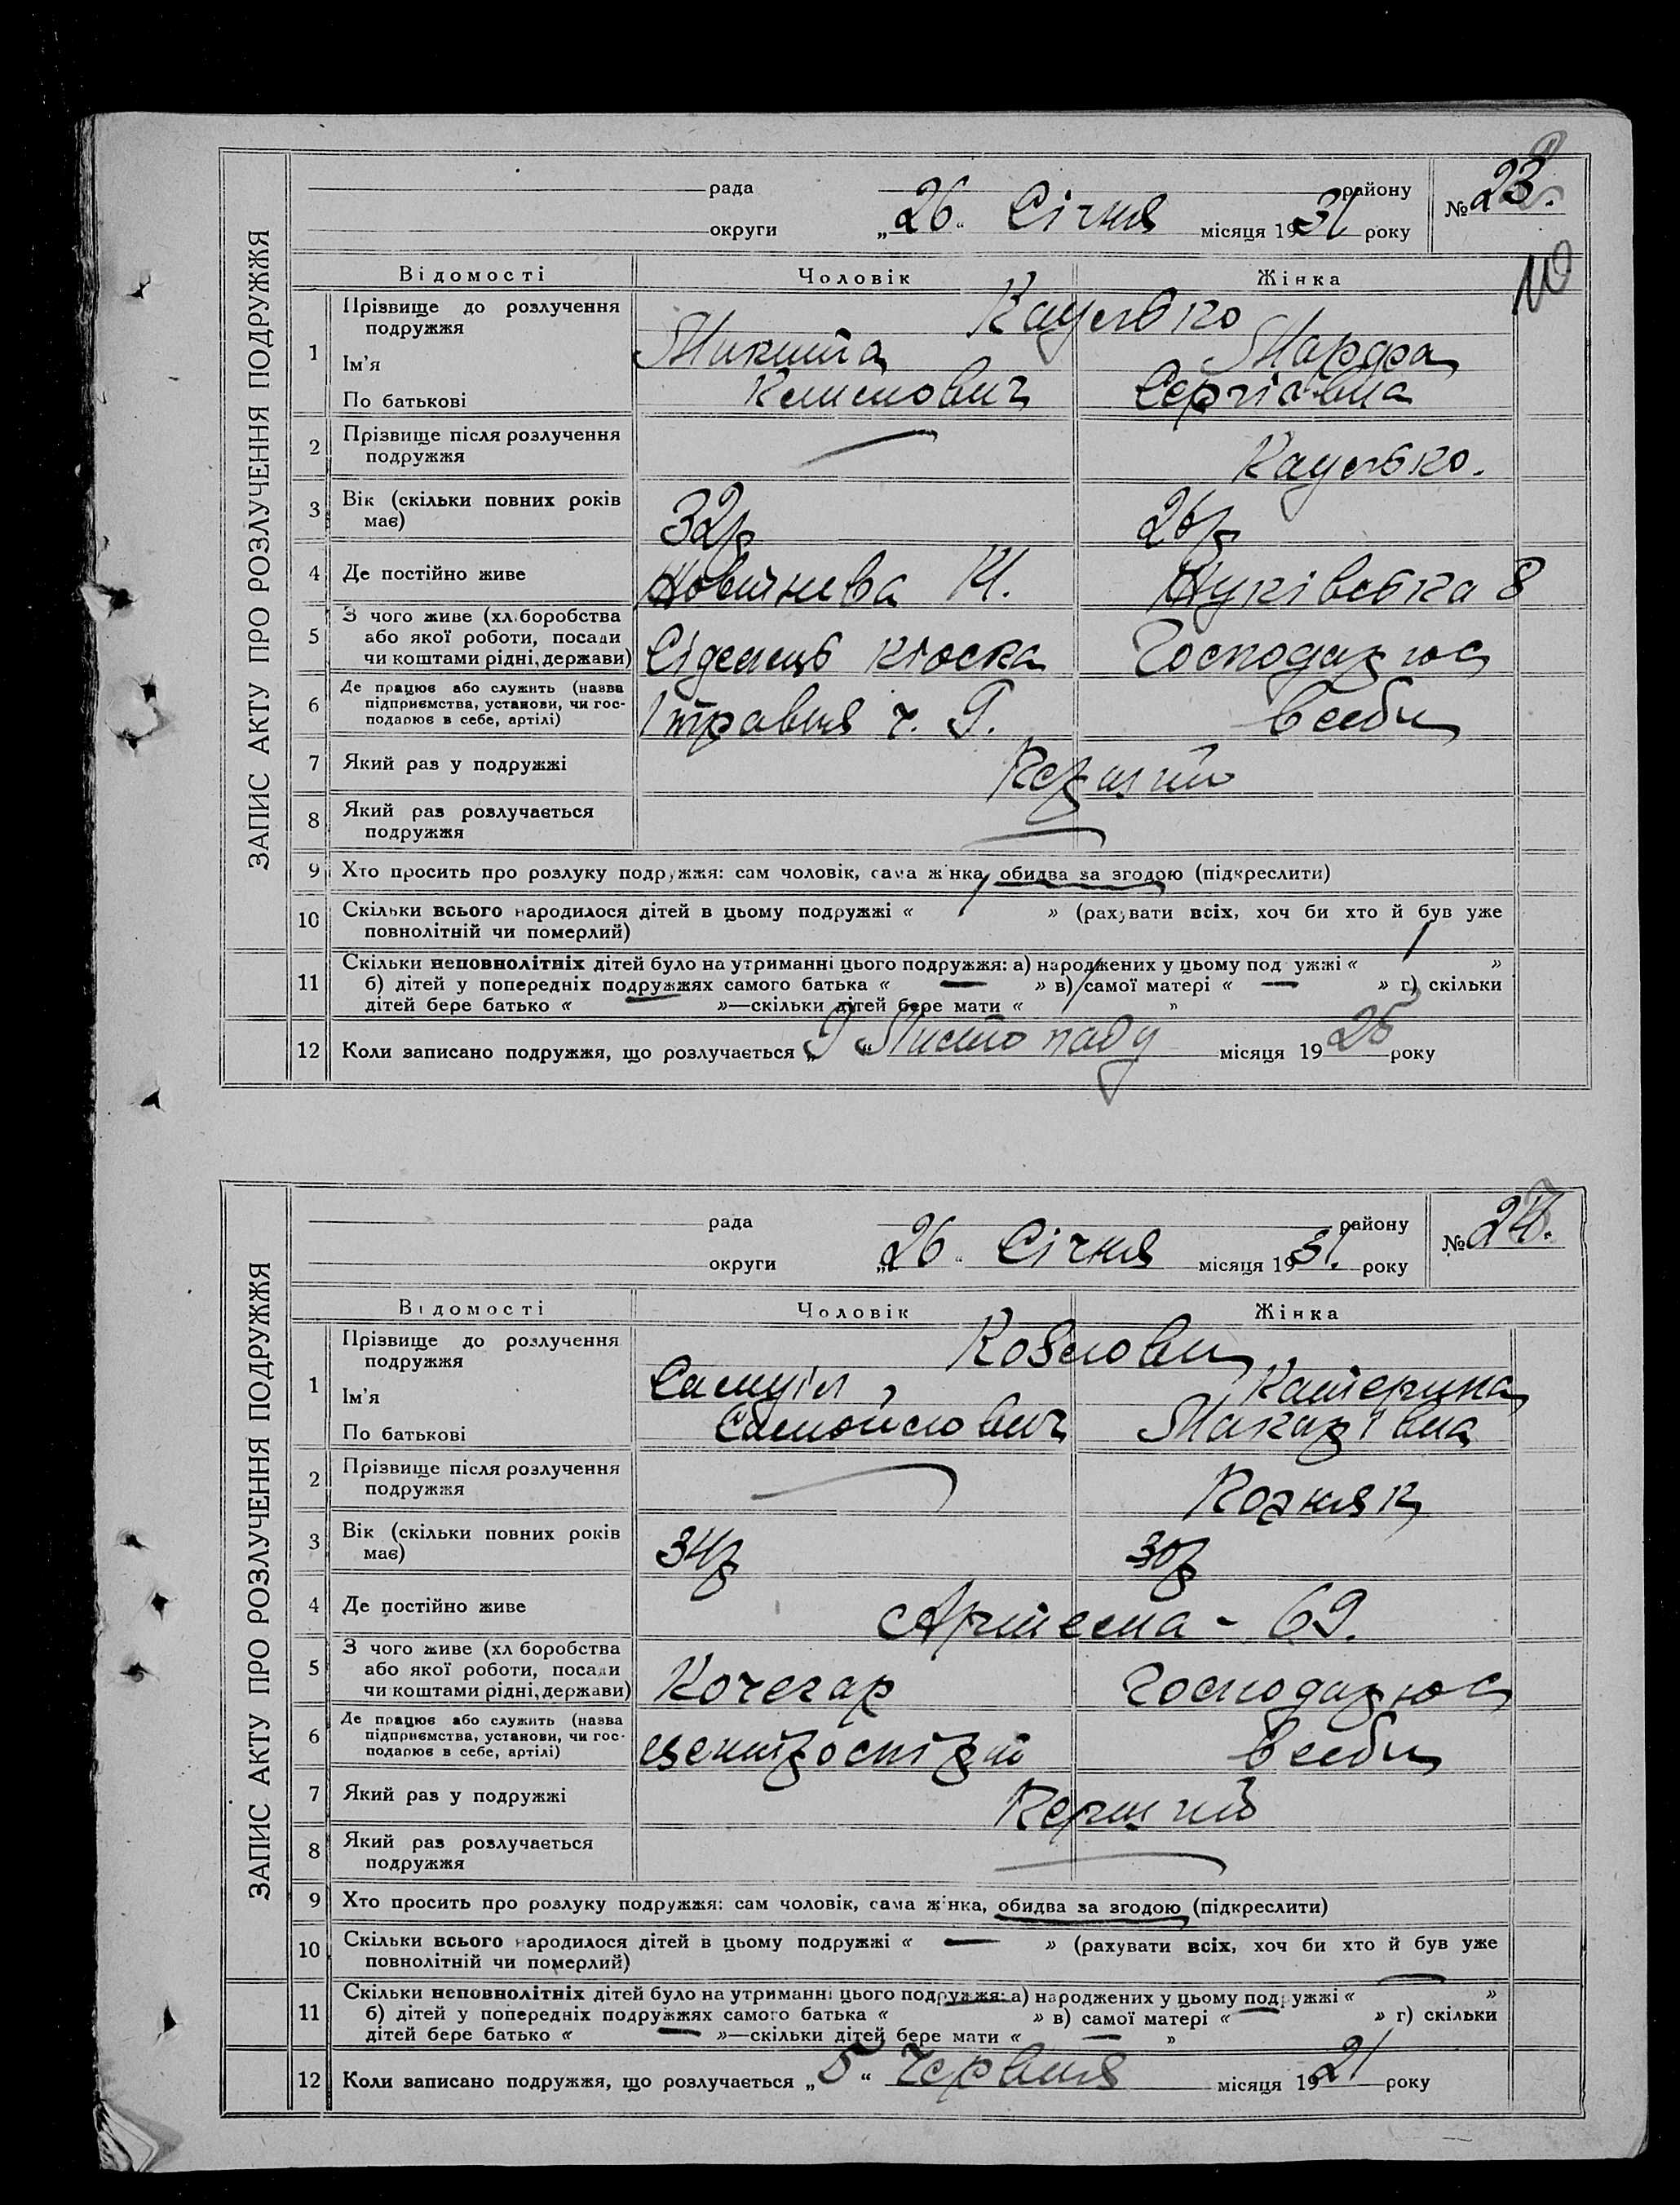 ЗАПИС АКТУ ПРО РОЗЛУЧЕННЯ ПОДРУЖЖЯ
рада району
№ 23.
округи „26“ Січня місяця 1931 року
10
Відомості Чоловік Жінка
1 Прізвище до розлучення
подружжя
Ім'я Микита Марфа
По батькові Климович Сергіївна
2 Прізвище після розлучення
подружжя
3 Вік (скільки повних років 32р 26р
має)
4 Де постійно живе
5 З чого живе (хл.боробства
або якої роботи, посади Сіделець кіоска Господарює
чи коштами рідні, держави)
6 Де працює або служить (назва
підприємства, установи, чи гос- 1 травня ч. 9. в себе
подарює в себе, артілі)
7 Який раз у подружжі Перший
8 Який раз розлучається
подружжя
9 Хто просить про розлуку подружжя: сам чоловік, сама жінка, обидва за згодою (підкреслити)
10 Скільки всього народилося дітей в цьому подружжі « 1 » (рахувати всіх, хоч би хто й був уже
повнолітній чи померлий)
11 Скільки неповнолітніх дітей було на утриманні цього подружжя: а) народжених у цьому подружжі « 1 »
б) дітей у попередніх подружжях самого батька « — » в) самої матері « — » г) скільки
дітей бере батько « — »—скільки дітей бере мати « 1 »
12 Коли записано подружжя, що розлучається „9“ Листопаду місяця 1925 року
ЗАПИС АКТУ ПРО РОЗЛУЧЕННЯ ПОДРУЖЖЯ
рада району
№ 24.
округи „26“ Січня місяця 1931. року
Відомості Чоловік Жінка
1 Прізвище до розлучення Козлови
подружжя
Ім'я Самуїл Катерина
По батькові Самойлович Макарівна
2 Прізвище після розлучення
подружжя
3 Вік (скільки повних років 34р 30р
має)
4 Де постійно живе Артема - 69.
5 З чого живе (хл боробства
або якої роботи, посади Кочегар Господарює
чи коштами рідні, держави)
6 Де працює або служить (назва
підприємства, установи, чи гос- центроспірт в себе
подарює в себе, артілі)
7 Який раз у подружжі Перший
8 Який раз розлучається
подружжя
9 Хто просить про розлуку подружжя: сам чоловік, сама жінка, обидва за згодою (підкреслити)
10 Скільки всього народилося дітей в цьому подружжі « — » (рахувати всіх, хоч би хто й був уже
повнолітній чи померлий)
11 Скільки неповнолітніх дітей було на утриманні цього подружжя: а) народжених у цьому подружжі « — »
б) дітей у попередніх подружжях самого батька « — » в) самої матері « — » г) скільки
дітей бере батько « — »—скільки дітей бере мати « — »
12 Коли записано подружжя, що розлучається „5“ Червня місяця 1921 року